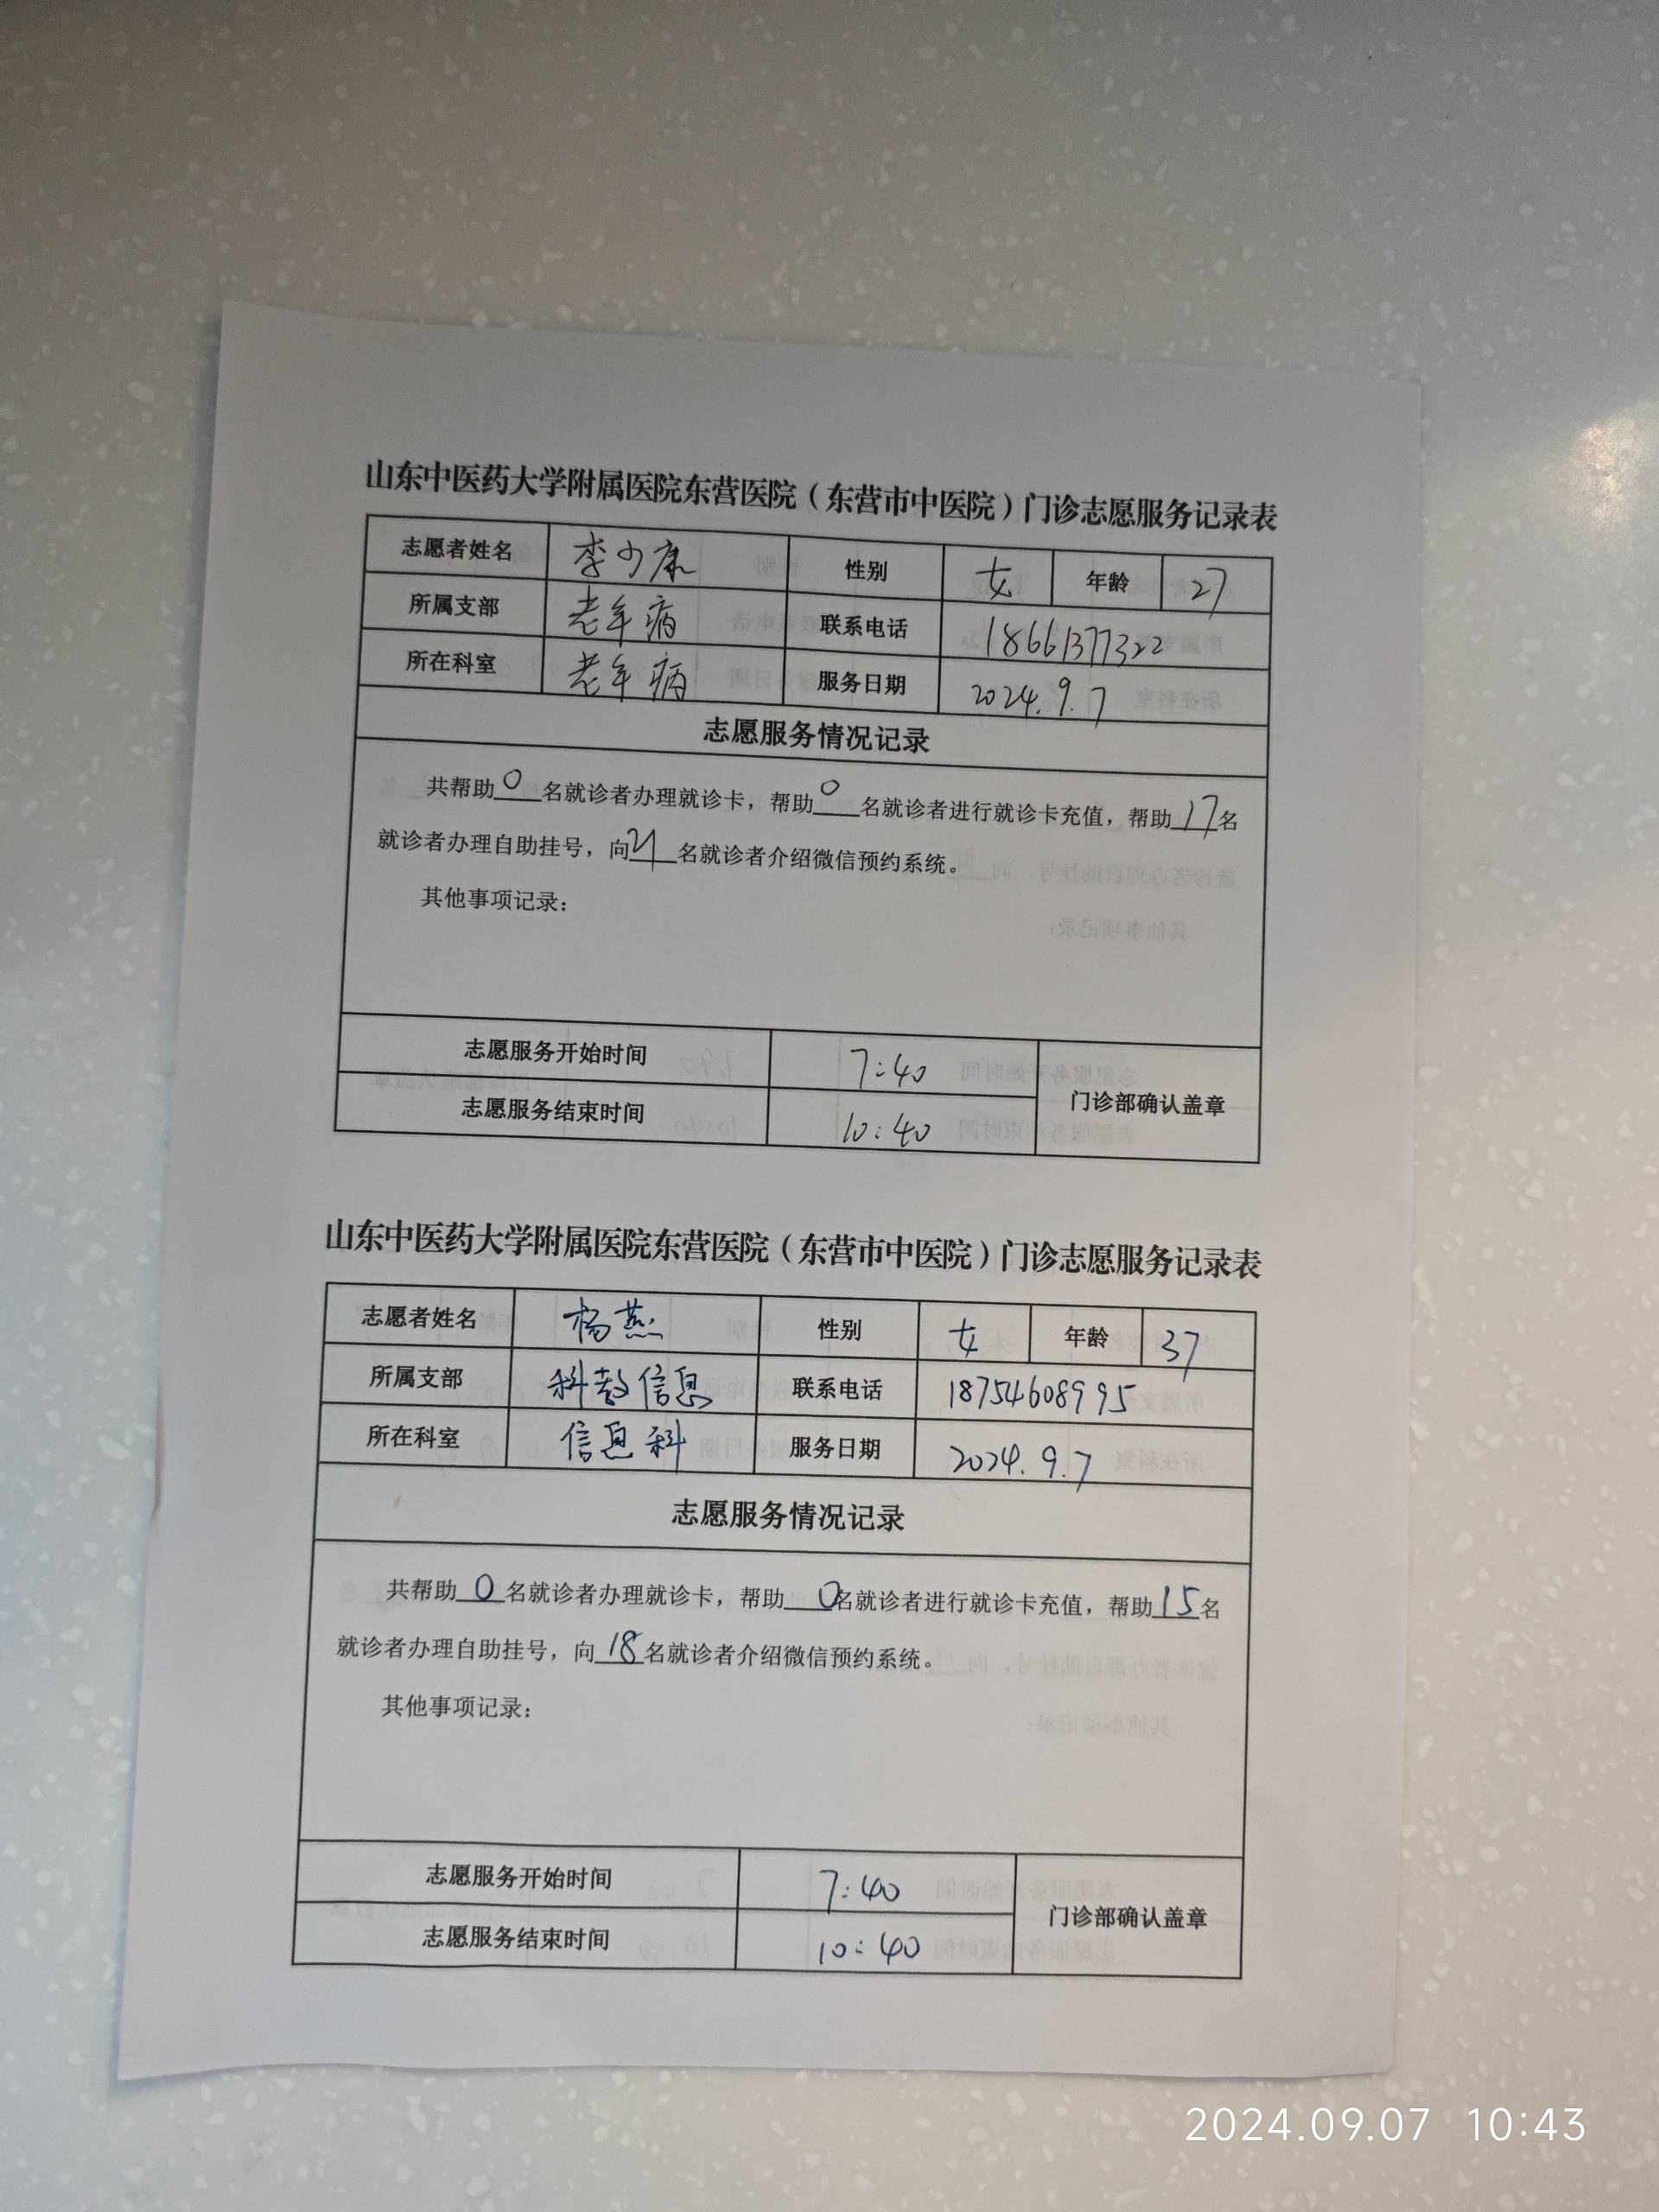 山东中医药大学附属医院东营医院（东营市中医院）门诊志愿服务记录表
志愿者姓名 李少康 性别 女 年龄 27
所属支部 老年病 联系电话 18661377322
所在科室 老年病 服务日期 2024.9.7
志愿服务情况记录
共帮助0名就诊者办理就诊卡，帮助0名就诊者进行就诊卡充值，帮助17名
就诊者办理自助挂号，向21名就诊者介绍微信预约系统。
其他事项记录：
志愿服务开始时间 7:40
门诊部确认盖章
志愿服务结束时间 10:40
山东中医药大学附属医院东营医院（东营市中医院）门诊志愿服务记录表
志愿者姓名 杨燕 性别 女 年龄 37
所属支部 科教信息 联系电话 18754608995
所在科室 信息科 服务日期 2024.9.7
志愿服务情况记录
共帮助0名就诊者办理就诊卡，帮助0名就诊者进行就诊卡充值，帮助15名
就诊者办理自助挂号，向18名就诊者介绍微信预约系统。
其他事项记录：
志愿服务开始时间 7:40
门诊部确认盖章
志愿服务结束时间 10:40
2024.09.07 10:43